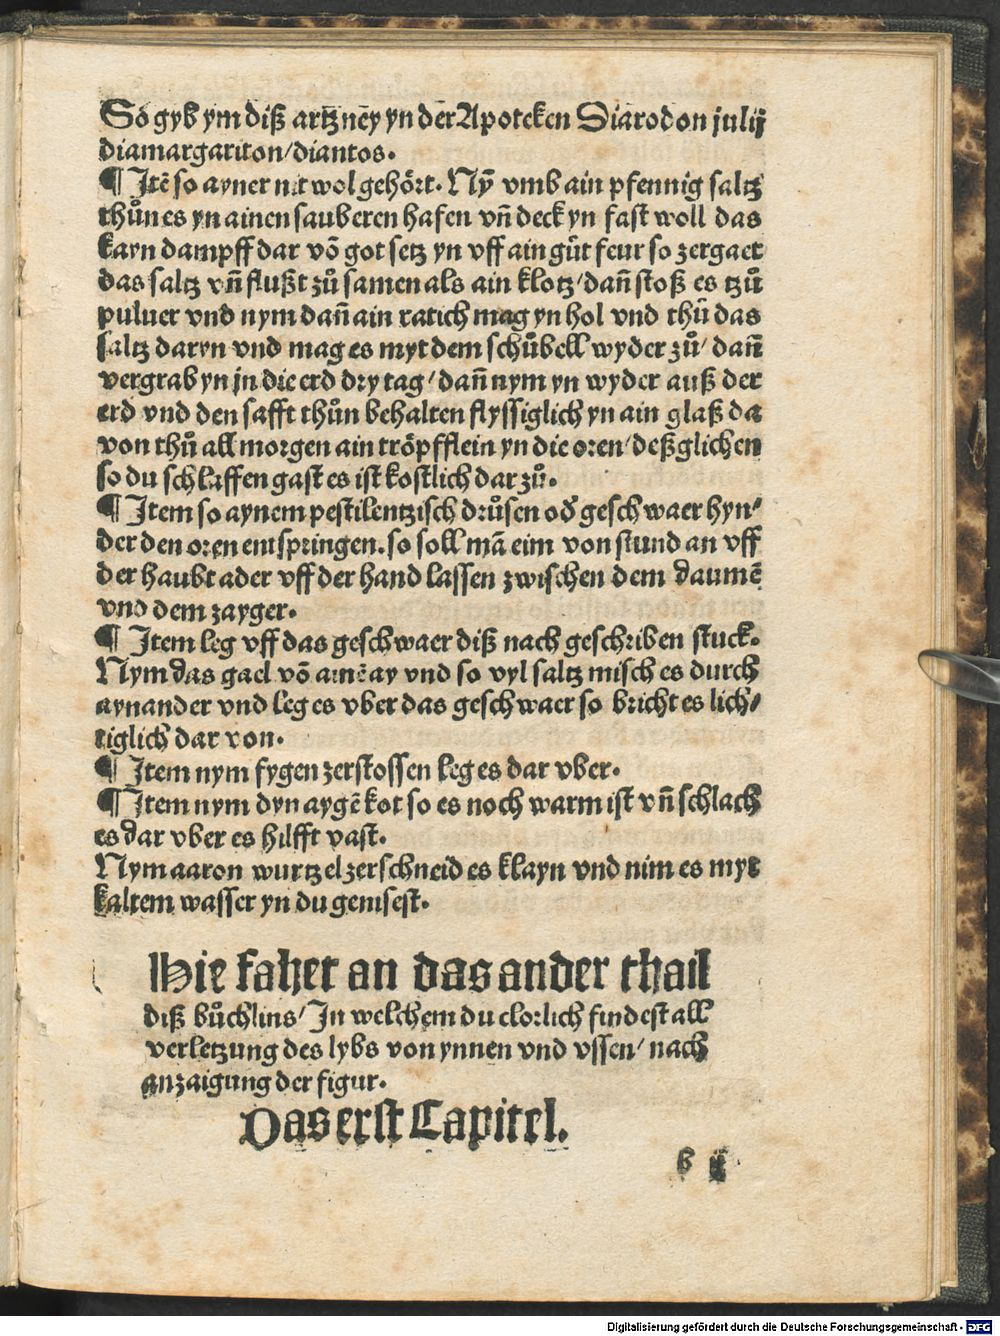 So gyb ym diß artzney yn der Apotecken Diarodon julij
diamargariton/ diantos.
¶ Jtē so ayner nit wol gehört. Nȳ vmb ain pfennig saltz
thůn es yn ainen sauberen hafen vñ deck yn fast woll das
kayn dampff dar vō got setz yn vff ain gůt feur so zergaet
das saltz vñ flußt zů samen als ain klotz/ dañ stoß es tzů
puluer vnd nym dañ ain ratich mag yn hol vnd thů das
saltz daryn vnd mag es myt dem schůbell wyder zů/ dañ
vergrab yn jn die erd dry tag/ dañ nym yn wyder auß der
erd vnd den safft thůn behalten flyssiglich yn ain glaß da
von thů all morgen ain tröpfflein yn die oren/ deßglichen
so du schlaffen gast es ist kostlich dar zů.
¶ Jtem so aynem pestilentzisch drůsen oď geschwaer hyn/
der den oren entspringen. so soll mā eim von stund an vff
der haubt ader vff der hand lassen zwischen dem daumē
vnd dem zayger.
¶ Jtem leg vff das geschwaer diß nach geschriben stuck.
Nym das gael vō amēay vnd so vyl saltz misch es durch
aynander vnd leg es vber das geschwaer so bricht es lich/
tiglich dar von.
¶ Jtem nym fygen zerstossen leg es dar vber.
¶ Jtem nym dyn aygē kot so es noch warm ist vñ schlach
es dar vber es hilfft vast.
Nym aaron wurtzel zerschneid es klayn vnd nim es myt
kaltem wasser yn du genisest.
Hie fahet an das ander thail
diß bůchlins/ Jn welchem du clorlich findest all
verletzung des lybs von ynnen vnd vssen/ nach
anzaigung der figur.
Das erst Capitel.
b ij
Digitalisierung gefördert durch die Deutsche Forschungsgemeinschaft - DFG